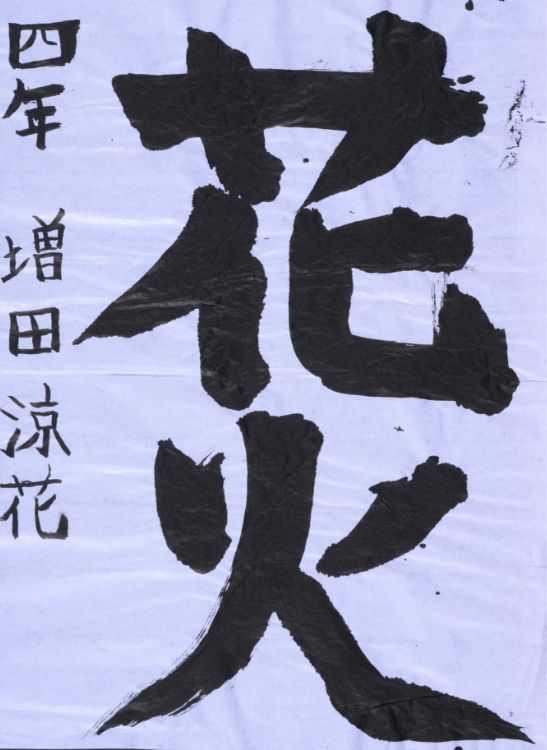 花火
四年 増田涼花